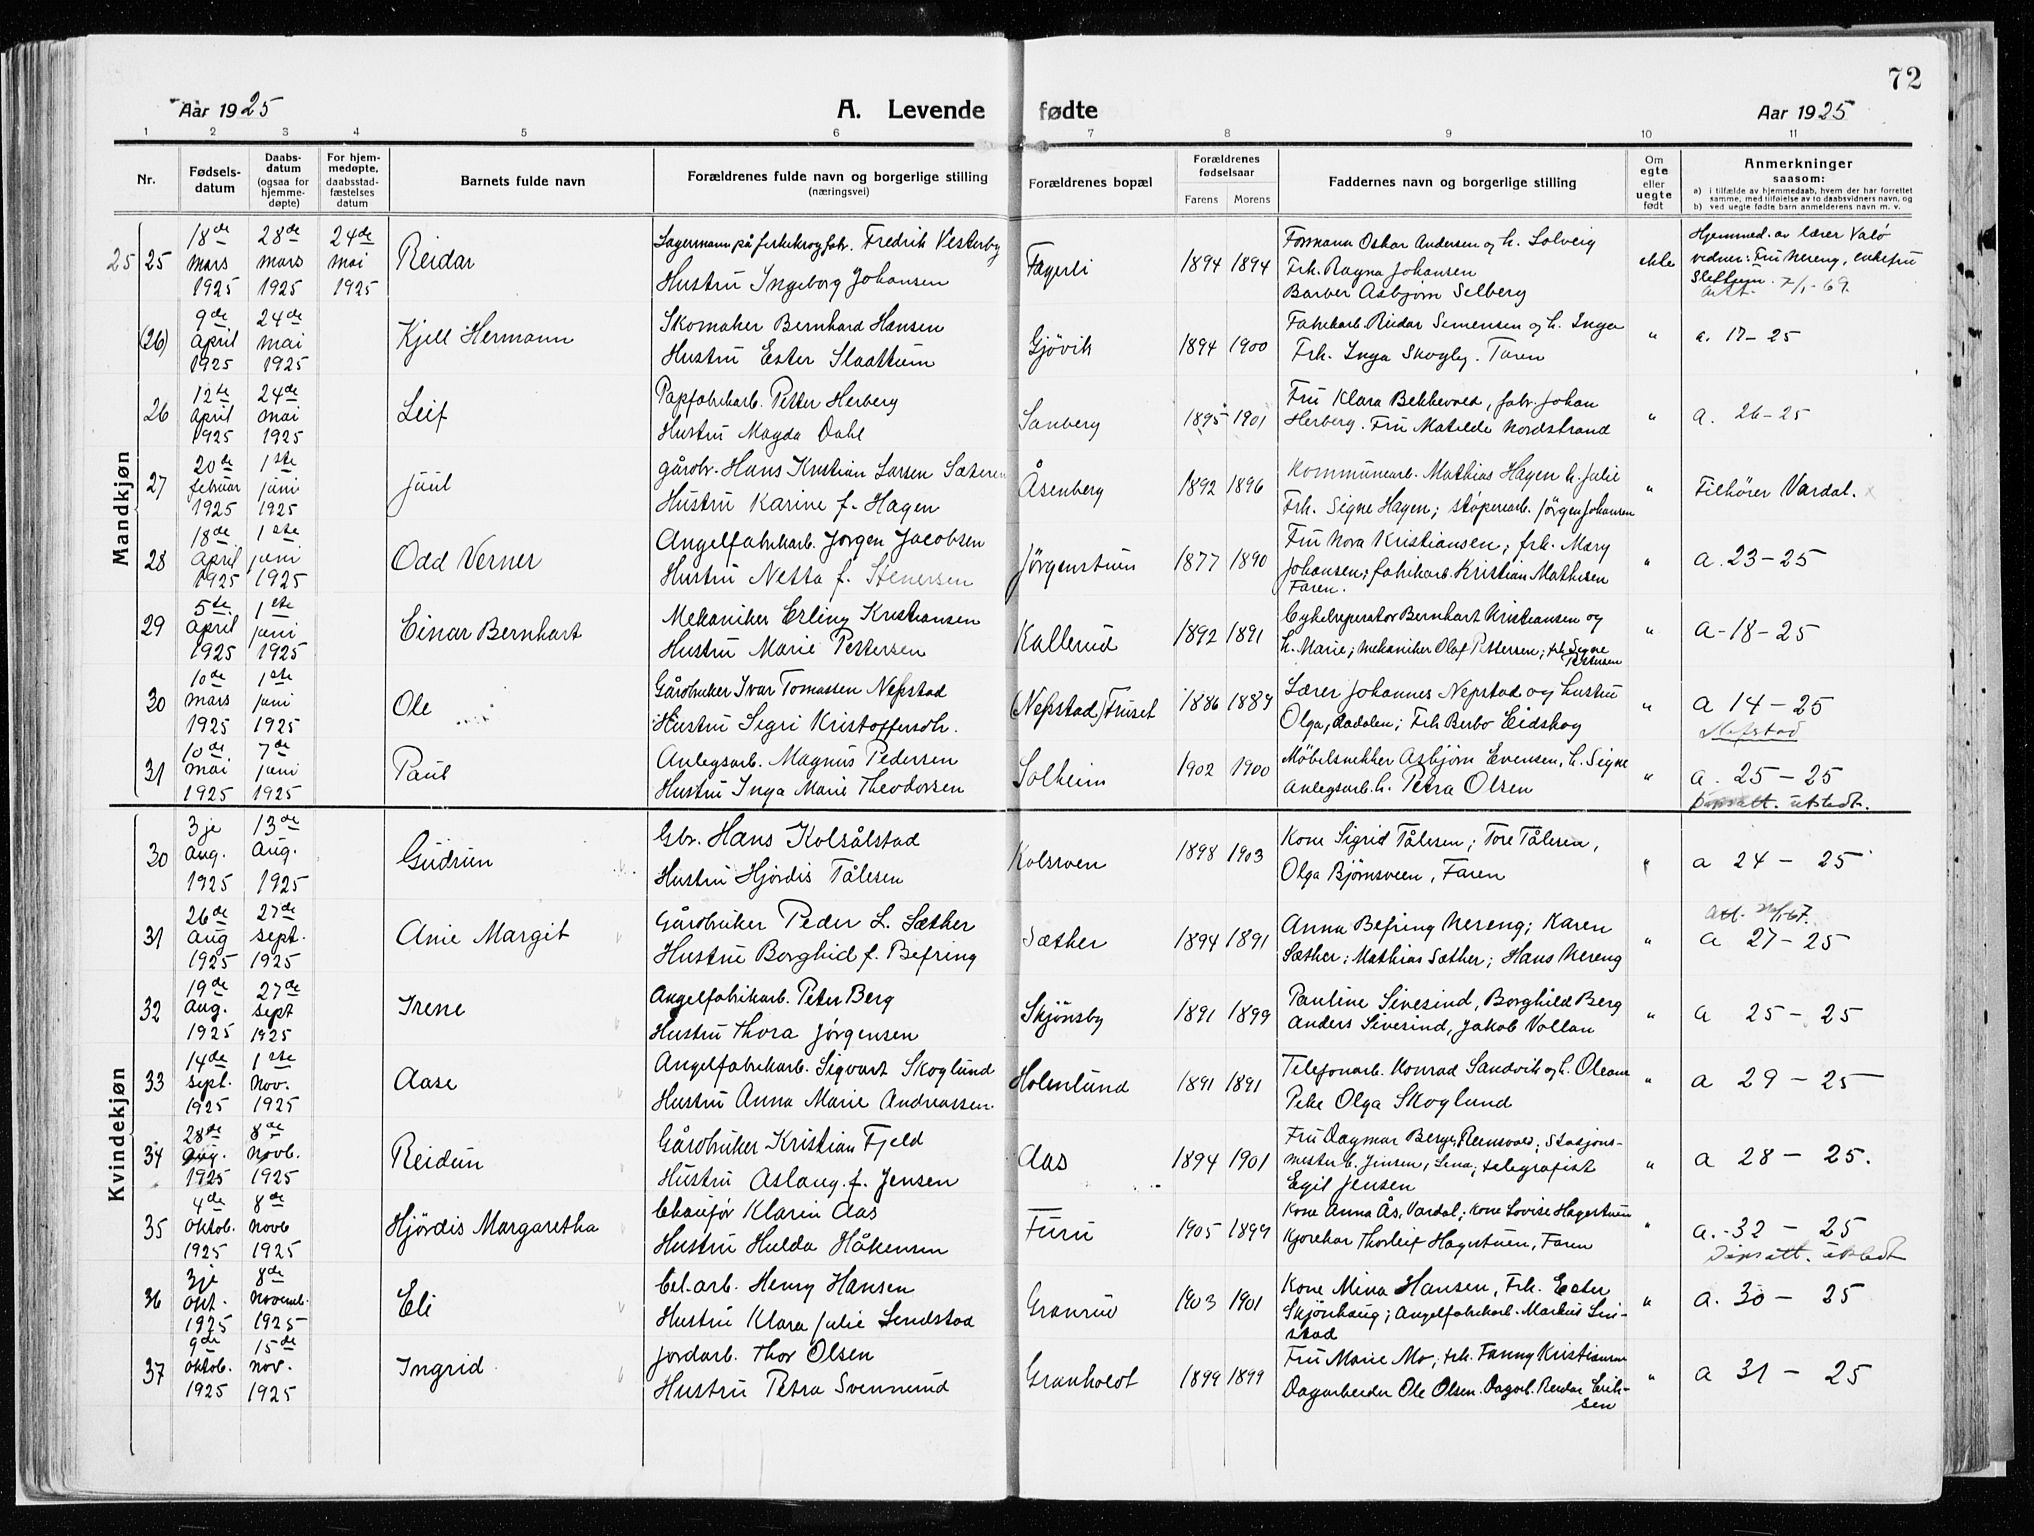 72
Aar 1925
A. Levende fødte
Aar 1925
1 2 3 4 5 6 7 8 9 10 11
Nr.
Fødsels-
datum
Daabs-
datum
(ogsaa for
hjemme-
døpte)
For hjem-
medøpte,
daabsstad-
fæstelses
datum
Barnets fulde navn
Forældrenes fulde navn og borgerlige stilling
(næringsvei)
Forældrenes bopæl
Forældrenes
fødselsaar
Farens Morens
Faddernes navn og borgerlige stilling
Om
egte
eller
uegte
født
Anmerkninger
saasom:
a) i tilfælde av hjemmedaab, hvem der har forrettet
samme, med tilføielse av to daabsvidners navn, og
b) ved uegte fødte barn anmelderens navn m. v.
Mandkjøn
25 25
18de mars 1925
28de mars 1925
24de mai 1925
Reidar
Lagermann på fiskekrogfabr. Fredrik Vesterby
Hustru Ingeborg Johansen
Fagerli
1894 1894
Formann Oskar Andersen og h. Solveig
Frk. Ragna Johansen
Barber Asbjørn Selberg
ekte
Hjemmed. av lærer Valø
vidner: Fru Nereng, enkefru
Slettum.
Att. 7/1-69
(26)
9de april 1925
24de mai 1925
Kjell Hermann
Skomaker Bernhard Hansen
Hustru Ester Slaattum
Gjøvik
1894 1900
Fabrikarb. Reidar Simensen og h. Inga
Frk. Inga Skogly. Faren
"
a. 17-25
26
12te april 1925
24de mai 1925
Leif
Papfabrikarb. Petter Herberg
Hustru Magda Dahl
Sanberg
1895 1901
Fru Klara Bekkevold, fabr. Johan
Herberg. Fru Matilde Nordstrand
"
a. 26-25
27
20de februar 1925
1ste juni 1925
Juul
Gårdbr. Hans Kristian Larsen Sæteren
Hustru Karine f. Hagen
Åsenberg
1892 1896
Kommunearb. Mathias Hagen h. Julie
Frk. Signe Hagen; støperearb. Jørgen Johansen
"
Tilhører Vardal. x
28
18de april 1925
1ste juni 1925
Odd Verner
Angelfabrikarb. Jørgen Jacobsen
Hustru Netta f. Stenersen
Jørgenstum
1877 1890
Fru Nora Kristiansen; frk. Mary
Johansen; fabrikarb. Kristian Mathisen
Faren.
"
a. 23-25
29
5te april 1925
1ste juni 1925
Einar Bernhart
Mekaniker Erling Kristiansen
Hustru Marie Pettersen
Kallerud
1892 1891
Cykelreperatør Bernhart Kristiansen og
h. Marie; mekaniker Olaf Pettersen; frk. Signe
Pettersen
"
a-18-25
30
10de mars 1925
1ste juni 1925
Ole
Gårdbruker Ivar Tomassen Nepstad
Hustru Sigri Kristoffersdtr.
(Nepstad) Fruset
1886 1889
Lærer Johannes Nepstad og hustru
Olga, Dadalen; Frk Berbo Eidskog
"
a 14-25
Nepstad
31
10de mai 1925
7de juni 1925
Paul
Anlegsarb. Magnus Pedersen
Hustru Inga Marie Theodorsen
Solheim
1902 1900
Møbelsnekker Asbjørn Evensen, h. Signe
anlegsarb. h. Petra Olsen
"
a. 25-25
Dåpsatt. utstedt.
Kvindekjøn
30
3je aug. 1925
13de aug. 1925
Gudrun
Gbr. Hans Kolsålstad
Hustru Hjördis Tålesen
Kolsveen
1898 1903
Kone Sigrid Tålesen; Tore Tålesen,
Olga Bjørnsveen, Faren
"
a 24-25
31
26de aug 1925
27de sept. 1925
Anie Margit
Gårdbruker Peder L. Sæther
Hustru Borghid f. Befring
Sæther
1894 1891
Anna Befring Nereng; Karen
Sæther; Mathias Sæther; Hans Nereng
"
a 27-25
32
19de aug. 1925
27de sept 1925
Irene
Angelfabrikarb. Peter Berg
Hustru Thora Jørgensen
Skjønsby
1891 1899
Pauline Sivesind, Borghild Berg
Anders Sivesind, Jakob Vollan
"
a 25-25
33
14de sept. 1925
1ste nov. 1925
Aase
Angelfabrikarb. Sigvart Skoglund
Hustru Anna Marie Andreassen.
Holmlund
1891 1891
Telefonarb. Konrad Sandvik og h. Oleane
Pike Olga Skoglund
"
a 29-25
34
28de aug. 1925
8de novb. 1925
Reidun
Gårdbruker Kristian Fjeld
Hustru Aslaug f. Jensen
Aas
1894 1901
Fru Dagmar Berge, Reinsvold; Stasjons-
mester h. Jensen, Lena; telegrafist
Egil Jensen
"
a 28-25.
35
4de oktob. 1925
8de novb 1925
Hjördis Margaretha
Chauför Klarin Aas
Hustru Hulda Håkensen
Furu
1905 1899
Kone Anna Ås, Vardal; kone Lovise Hagestuen
Kjørekar Thorleif Hagestuen, Faren
"
a.-32-25
Dåpsatt. utstedt
36
3je okt. 1925
8de novemb. 1925
Eli
Cel.arb. Henry Hansen
Hustru Klara Julie Lundstad
Granrud
1903 1901
Kone Mina Hansen, Frk. Ester
Skjønhaug; Angelfabrikarb. Markus Lin-
stad
"
a. 30-25
37
9de oktob. 1925
15de nov. 1925
Ingrid
Jordarb. Thor Olsen
Hustru Petra Svennerud
Granholdt
1899 1899
Fru Marie Mo; frk. Fanny Kristiansen
Dagarbeider Ole Olsen. Dagarb. Reidar Erik-
sen
"
a 31-25